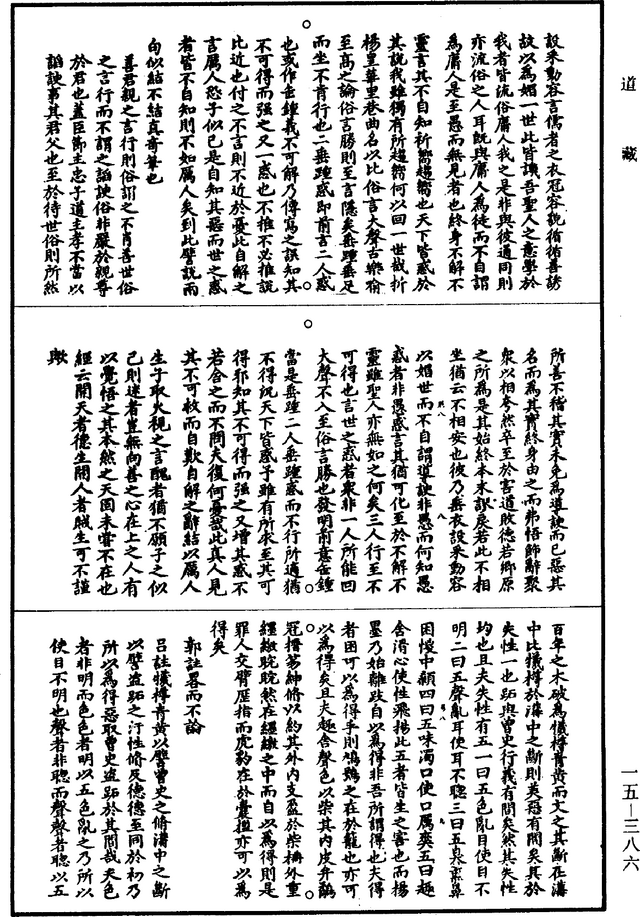 道藏
設采動容言儒者之衣冠容貌循循善誘
故以為媚一世此皆譏吾聖人之意學於
我者皆流俗庸人我之是非與彼通同則
亦流俗之人耳既與庸人為徒而不自謂
為庸人是至愚而無見者也終身不解不
靈言其不自知祈嚮趨嚮也天下皆惑於
其說我雖獨有所趨嚮何以回一世哉折
楊皇華里巷曲名以比俗言大聲古樂喻
至高之論俗言勝則至言隱矣垂踵垂足
而坐不肯行也二垂踵惑即前言二人惑
也或作缶鍾義不可解乃傳寫之誤知其
不可得而強之又一惑也不推不必推說
比近也付之不言則不近於憂此自解之
言厲人恐子似己是自知其惡而世之惑
者皆不自知則不如厲人矣到此譬說而
句似結不結真奇筆也
善君親之言行則俗謂之不肖善世俗
之言行而不謂之諂諛俗非嚴於親尊
於君也蓋臣節主忠子道主孝不當以
諂諛事其君父也至於待世俗則所然
所善不稽其實未免為導諛而已惡其
名而為其實終身由之而弗悟飾辭聚
眾以相夸然卒至於害道敗德若鄉原
之所為是其始終本末誤戾若此不相
坐猶云不相安也彼乃垂衣設采動容
以媚世而不自謂導諛非愚而何知愚
惑者非愚惑言其猶可化至於不解不
靈雖聖人亦無如之何矣三人行至不
可得也言世之惑者衆非一人所能回
大聲不入至俗言勝也發明前意缶鍾
當是垂踵二人垂踵惑而不行所適猶
不得況天下皆惑予雖有所求至其可
得邪知其不可得而強之又增其惑不
若舍之而不問夫復何憂哉此真人見
其不可救而自歎自解之辭結以厲人
生子取火視之言醜者猶不願子之似
己則迷者豈無向善之心在上之人有
以覺悟之其本然之天固未嘗不在也
經云開天者德生開人者賊生可不謹
歟
百年之木破為犧樽青黃而文之其斷在溝
中比犧樽於溝中之斷則美惡有間矣其於
失性一也跖與曾史行義有間矣然其失性
均也且夫失性有五一曰五色亂目使目不
明二曰五聲亂耳使耳不聰三曰五臭薰鼻
困惾中顙四曰五味濁口使口厲爽五曰趣
舍滑心使性飛揚此五者皆生之害也而楊
墨乃始離跂自以為得非吾所謂得也夫得
者困可以為得乎則鳩鴞之在於籠也亦可
以為得矣且夫趣舍聲色以柴其內皮弁鷸
冠搢笏紳脩以約其外內支盈於柴柵外重
纆繳睆睆然在纆繳之中而自以為得則是
罪人交臂歷指而虎豹在於囊檻亦可以為
得矣
郭註畧而不論
呂註犧樽青黃以譬曾史之脩溝中之斷
以譬盜跖之汙性脩反德德至同於初乃
所以為得惡取曾史盜跖於其間哉夫色
者非明而色色者明以五色亂之乃所以
使目不明也聲者非聰而聲聲者聰以五
一五—三八六